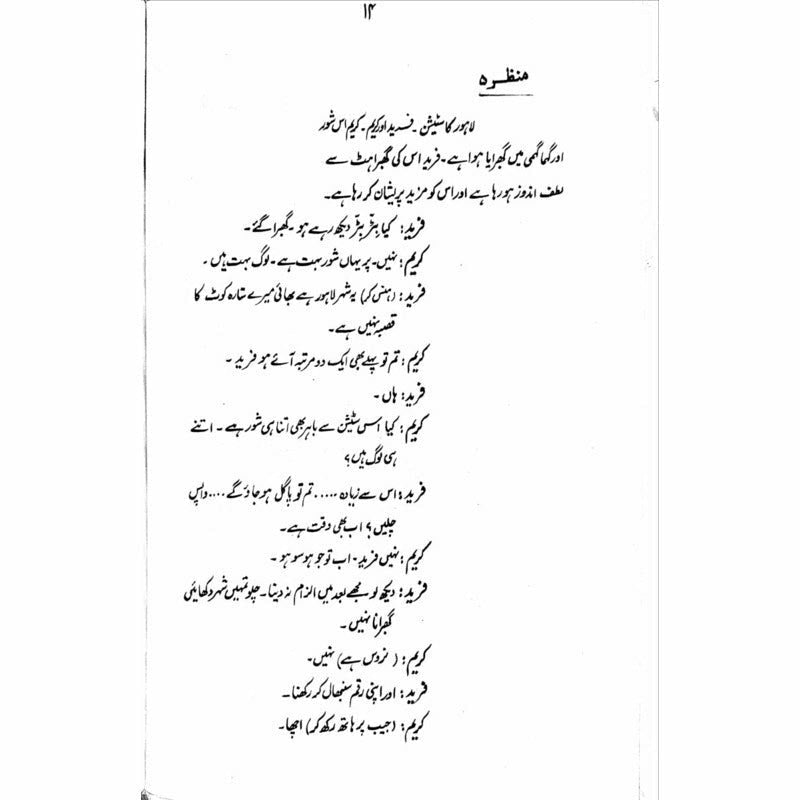 ۱۴
منظر ۵
لاہور کا سٹیشن ۔ فرید اور کریم ۔ کریم اس شور
اور گہما گہمی میں گھبرایا ہوا ہے ۔ فرید اس کی گھبراہٹ سے
لطف اندوز ہو رہا ہے اور اس کو مزید پریشان کر رہا ہے۔
فرید: کیا بٹر بٹر دیکھ رہے ہو ۔ گھبرا گئے ۔
کریم: نہیں ۔ پر یہاں شور بہت ہے ۔ لوگ بہت ہیں ۔
فرید: (ہنس کر) یہ شہر لاہور ہے بھائی میرے ستارہ کوٹ کا
قصبہ نہیں ہے۔
کریم: تم تو پہلے بھی ایک دو مرتبہ آئے ہو فرید ۔
فرید: ہاں ۔
کریم: کیا اس سٹیشن سے باہر بھی اتنا ہی شور ہے ۔ اتنے
ہی لوگ ہیں؟
فرید: اس سے زیادہ ..... تم تو پاگل ہو جاؤ گے .... واپس
چلیں؟ اب بھی وقت ہے۔
کریم: نہیں فرید ۔ اب تو جو ہو سو ہو ۔
فرید: دیکھ لو مجھے بعد میں الزام نہ دینا ۔ چلو تمہیں شہر دکھائیں
گھبرانا نہیں ۔
کریم: (نروس ہے) نہیں۔
فرید: اور اپنی رقم سنبھال کر رکھنا ۔
کریم: (جیب پر ہاتھ رکھ کر) اچھا۔